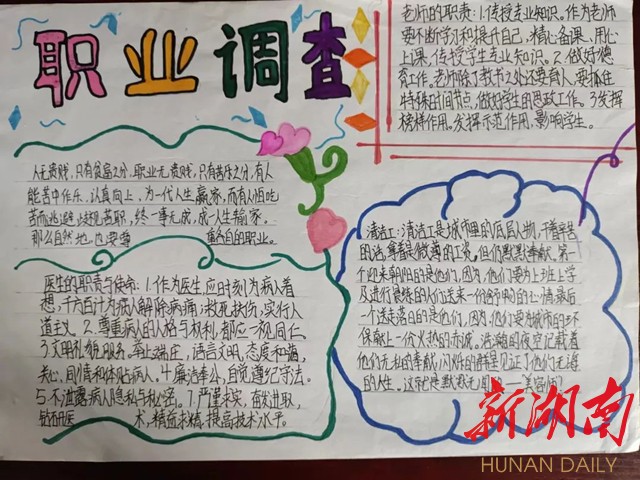 职业调查
老师的职责:1.传授专业知识。作为老师
要不断学习和提升自己,精心备课,用心
上课,传授学生专业知识。2.做好德
育工作。老师除了教书之外还要育人,要抓住
特殊时间节点,做好学生的思政工作。3.发挥
榜样作用。发挥示范作用,影响学生。
人无贵贱,只有贫富之分,职业无贵贱,只有苦乐之分,有人
能苦中作乐,认真向上,为一代人生赢家,而有人怕吃
苦而逃避,终一事无成,成一人生输家。
那么自然地,也要尊重各自的职业。
医生的职责与使命:1.作为医生应时刻为病人着
想,千方百计为病人解除病痛,救死扶伤,实行人
道主义。2.尊重病人的人格与权利,都应一视同仁。
3.文明礼貌服务。举止端庄,语言文明,态度和蔼,
关心、同情和体贴病人。4.廉洁奉公,自觉遵纪守法。
5.不泄露病人隐私与私密。7.严谨求实,奋发进取,
钻研医术,精益求精,提高技术水平。
清洁工:清洁工是城市里的底层人物,干着辛苦
的活,拿着微薄的工资。但们默默奉献。第一
个迎来朝阳的是他们,因为,他们要为上班上学
及进行晨练的人们送来一份舒畅的心情,最后
一个送走落日的是他们,因为,他们要为城市的环
保献上一份火热的赤诚。浩瀚的夜空记载着
他们无私的奉献,闪烁的群星见证了他们无悔
的人生。这就是默默无闻的——美容师!
新湖南
HUNAN DAILY